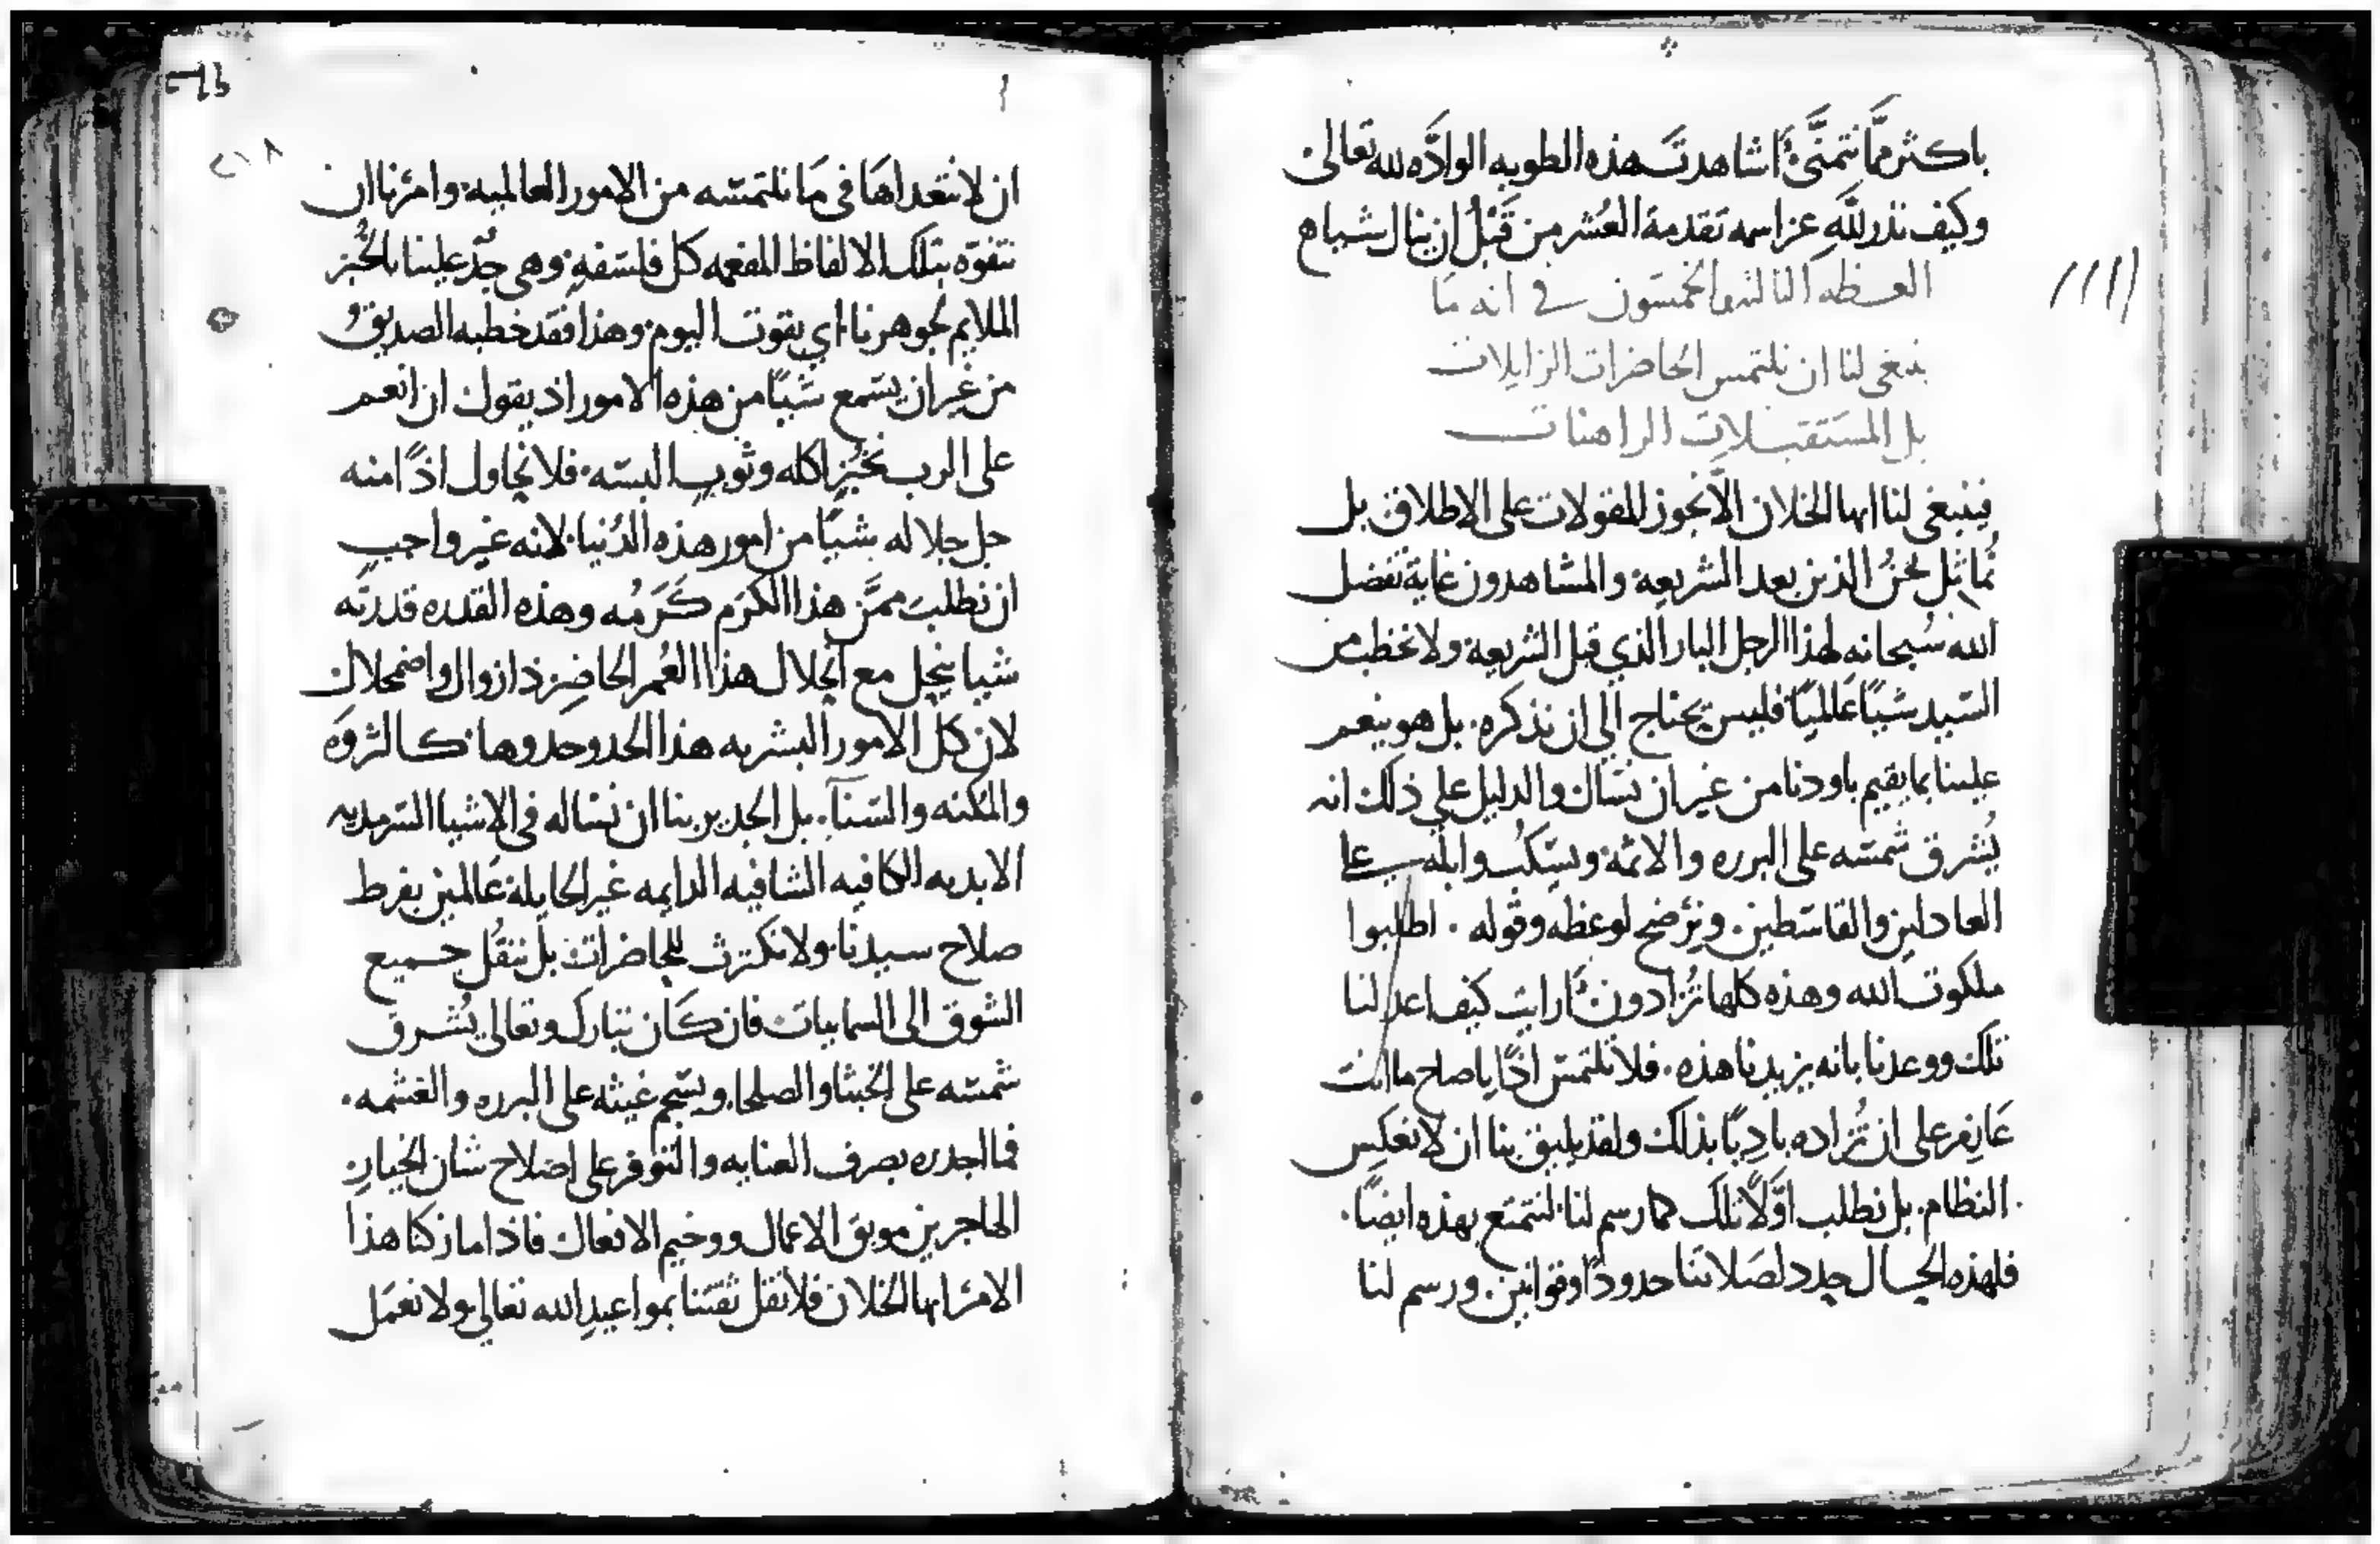 باكثر مما نتمنى اشاهدت هذه الطويه الوادّه لله تعالى
وكيف نذر لله عز اسمه تقدمة العُشر من قَبْل ان ينال شيا م
العظه الثالثه والخمسون في انه ما
ينبغي لنا ان نلتمس الحاضرات الزايلات
بل المستقبلات الراهنات
فينبغي لنا ايها الخلان الّا نجوز المقولات على الاطلاق بل
نُماثل نحنُ الذين بعد الشريعه والمشاهدون غاية تفضل
الله سُبحانه لهذا الرجل البار الذي قبل الشريعه ولا نخطب من
السَيد شيًا عَالميًا فليس يحتاج الي ان نذكره. بل هو ينعم
علينا بما يقيم باودنا من غير ان نسَال والدليل علي ذلك انه
يُشرق شمسَه على البرره والاثمه ويسَكُب وابله على
العادلين والقاسَطين. ونرضخ لوعظه وقوله . اطلبوا
ملكوت الله وهذه كلها تُزادون اَرايت كيف اعد لنا
تلك ووعدنا بانه يزيدنا هذه. فلا تلتمس اذًا ياصاح ما انت
عَازم على ان تُزاده باديًا بذلك ولقد يليق بنا ان لا نعكس
النظام. بل نطلب اوّلًا تلك كما رسم لنا لنتمتع بهذه ايضًا.
فلهذه الحال حدد لصَلاتنا حدودًا وقوانين. ورسم لنا
٢١٨
ان لا نتعداهَا في مَا نلتمسَه من الامور العالميه وامرَنا ان
نتفوّه بتلك الالفاظ المفعمه كل فلسَفهٍ وهي جُدّ علينا بالخُبز
الملايم لجوهرنا اي بقوت اليوم وهذا فقد خطبه الصديق
من غير ان يسَمع شيًا من هذه الامور اذ يقول ان انعم
على الرب بخُبزٍ اكله وثوبٍ البسَه. فلا نحاول اذًا منه
جل جلاله شيًا من امور هذه الدُنيا لانه غير واجبٍ
ان نطلبَ ممَّن هذا الكرَم كَرَمُه وهذه القدره قدرتَه
شيا ينحل مع انحلال هذا العُمر الحاضِر ذا زوال واضمحلال
لان كل الامور البشريه هذا الحد وحدوها. كالثروَه
والمكنه والسَناَ. بل الجدير بنا ان نسَاله في الاشيا السَرمديه
الابديه الكافيه الشافيه الدايمه غير الحايلة عَالمين بفرط
صلاح سيدنَا ولا نكترث للحاضرات بل ننقُل جميع
الشوق الى السمايياتَ فان كَان تبارك وتعالى يُشرق
شمسَه على الخبثا والصلحا ويسَجم غيثه على البرره والغشمه.
فما اجدره بصرف العنايه والتوفر على اصلاح شان الخيارِ
الهاجرين موبق الاعمال ووخيم الافعال فاذا ما زكنا هذا
الامرَ ايها الخلان فلا تقل ثقتنا بمواعيدِ الله تعالي ولا نعمَل